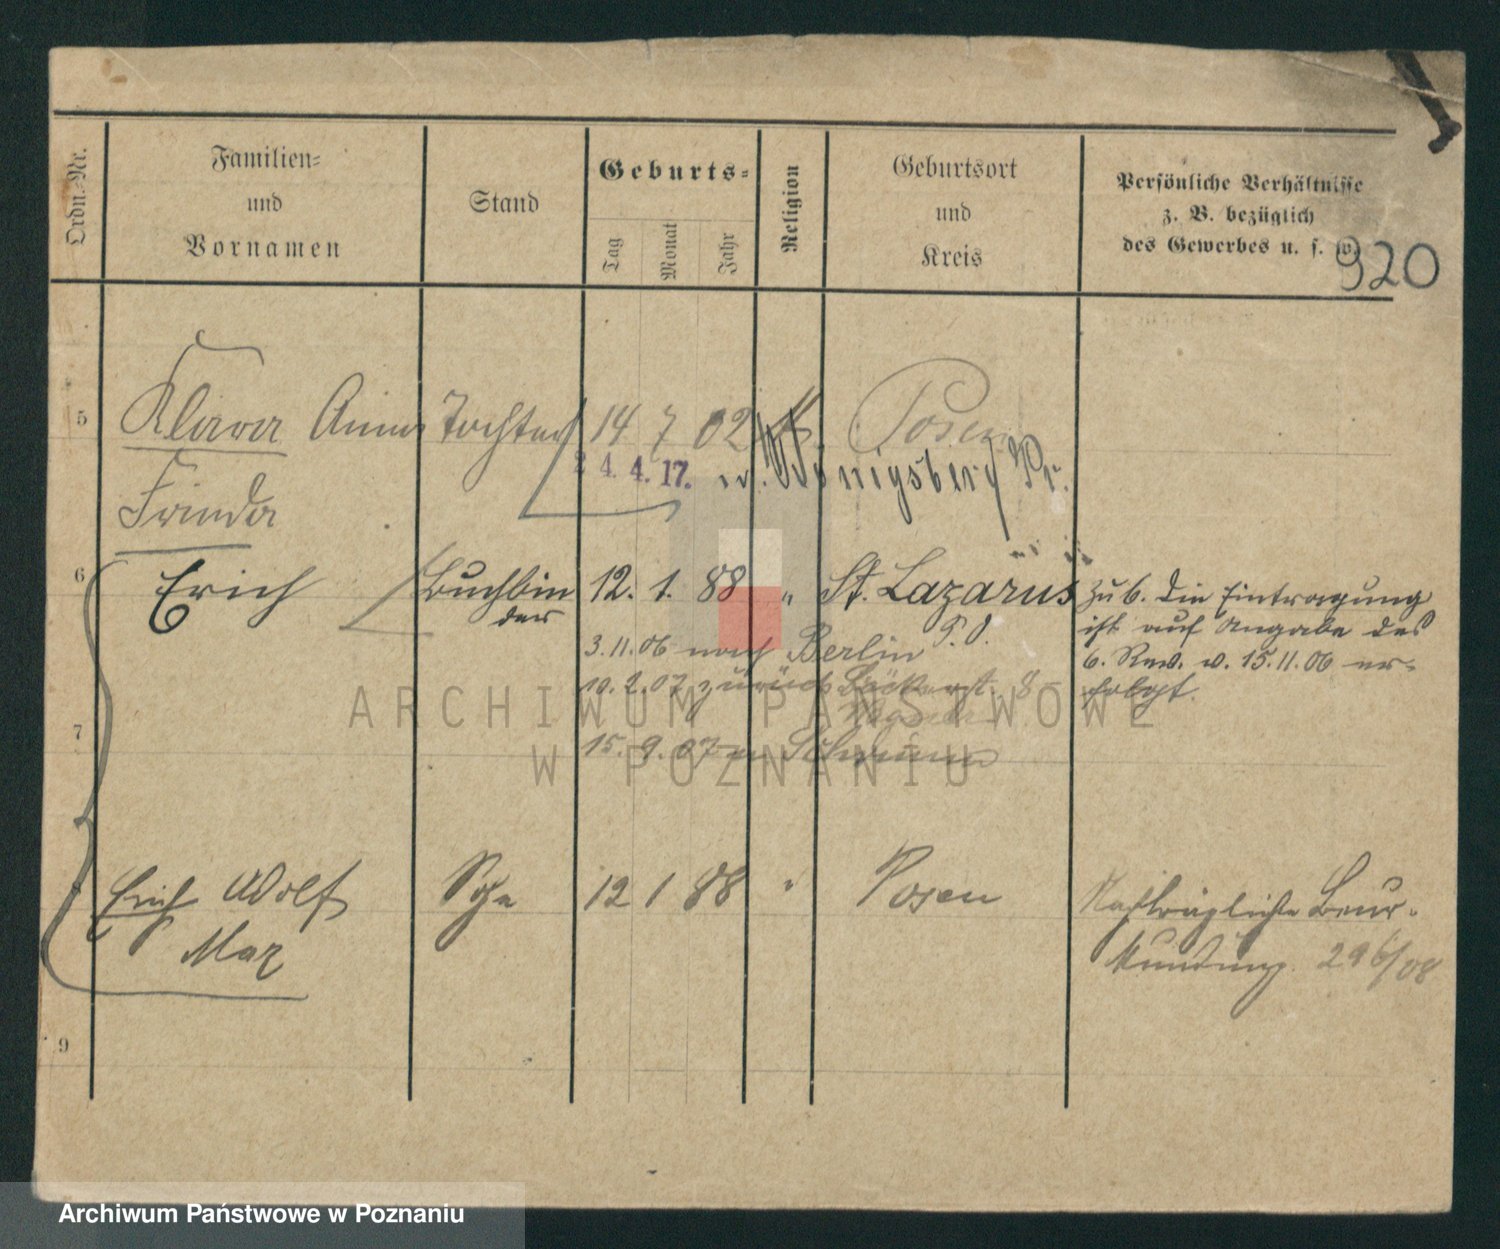 Ordn.-Nr.
Familien-
und
Vornamen
Stand
Geburts-
Tag
Monat
Jahr
Religion
Geburtsort
und
Kreis
Persönliche Verhältnisse
z. B. bezüglich
des Gewerbes u. s. w.
920
5 Klara Anna Tochter 14 7 02 K. Posen
Frieda
24. 4. 17. n. Königsberg Pr.
6 Erich Buchbin 12. 1. 88 " St. Lazarus
der
3.11.06 nach Berlin
10.2.07 zurück 8
15. 9. 07 n
7
zu 6. Die Eintragung
ist auf Angabe des
6. Rev. v. 15.11.06 er-
folgt.
Erich Adolf Sohn 12 1 88 " Posen
Max
Nachträgliche Beur-
kundung 296/08
9
ARCHIWUM PAŃSTWOWE
W POZNANIU
Archiwum Państwowe w Poznaniu